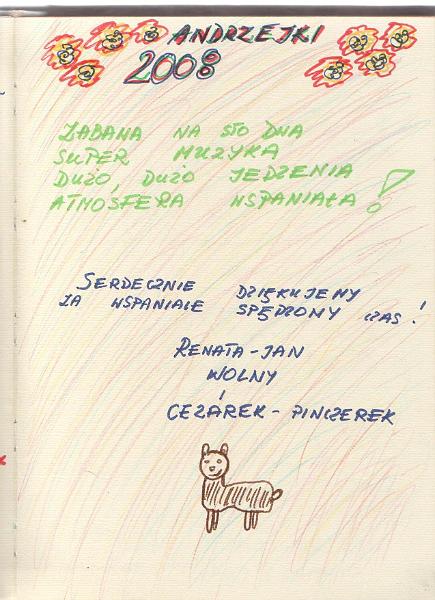 ANDRZEJKI
2008
ZABAWA NA STO DWA
SUPER MUZYKA
DUŻO, DUŻO JEDZENIA
ATMOSFERA WSPANIAŁA!
SERDECZNIE DZIĘKUJEMY
ZA WSPANIALE SPĘDZONY CZAS!
RENATA-JAN
WOLNY
i
CEZAREK-PINCZEREK